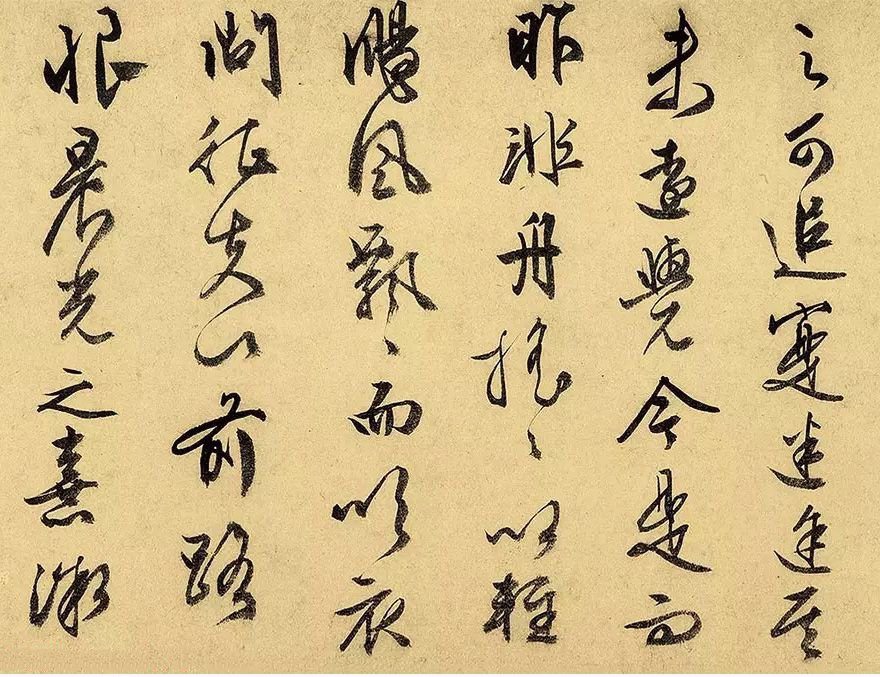 之可追寔迷途其
未遠覺今是而
昨非舟搖〻以輕
颺風飄〻而吹衣
問征夫以前路
恨晨光之熹微